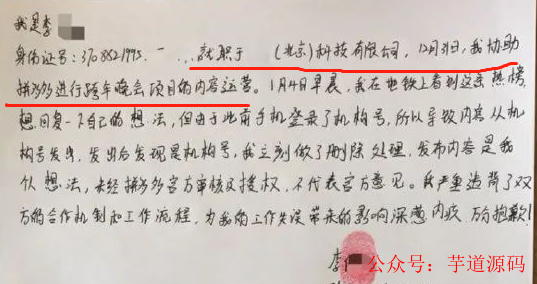 我是李
身份证号：3708821995 就职于 （北京）科技有限公司，12月31日，我协助
拼多多进行跨年晚会项目的内容运营。1月4日早晨，我在地铁上看到这条热榜，
想回复一下自己的想法，但由于此前手机登录了机构号，所以导致内容从机
构号发出，发出后发现是机构号，我立刻做了删除处理，发布内容是我
个人想法，未经拼多多官方审核及授权，不代表官方意见。我严重违背了双
方的合作机制和工作流程，为我的工作失误带来的影响深感内疚，向抱歉！
李
公众号：芋道源码